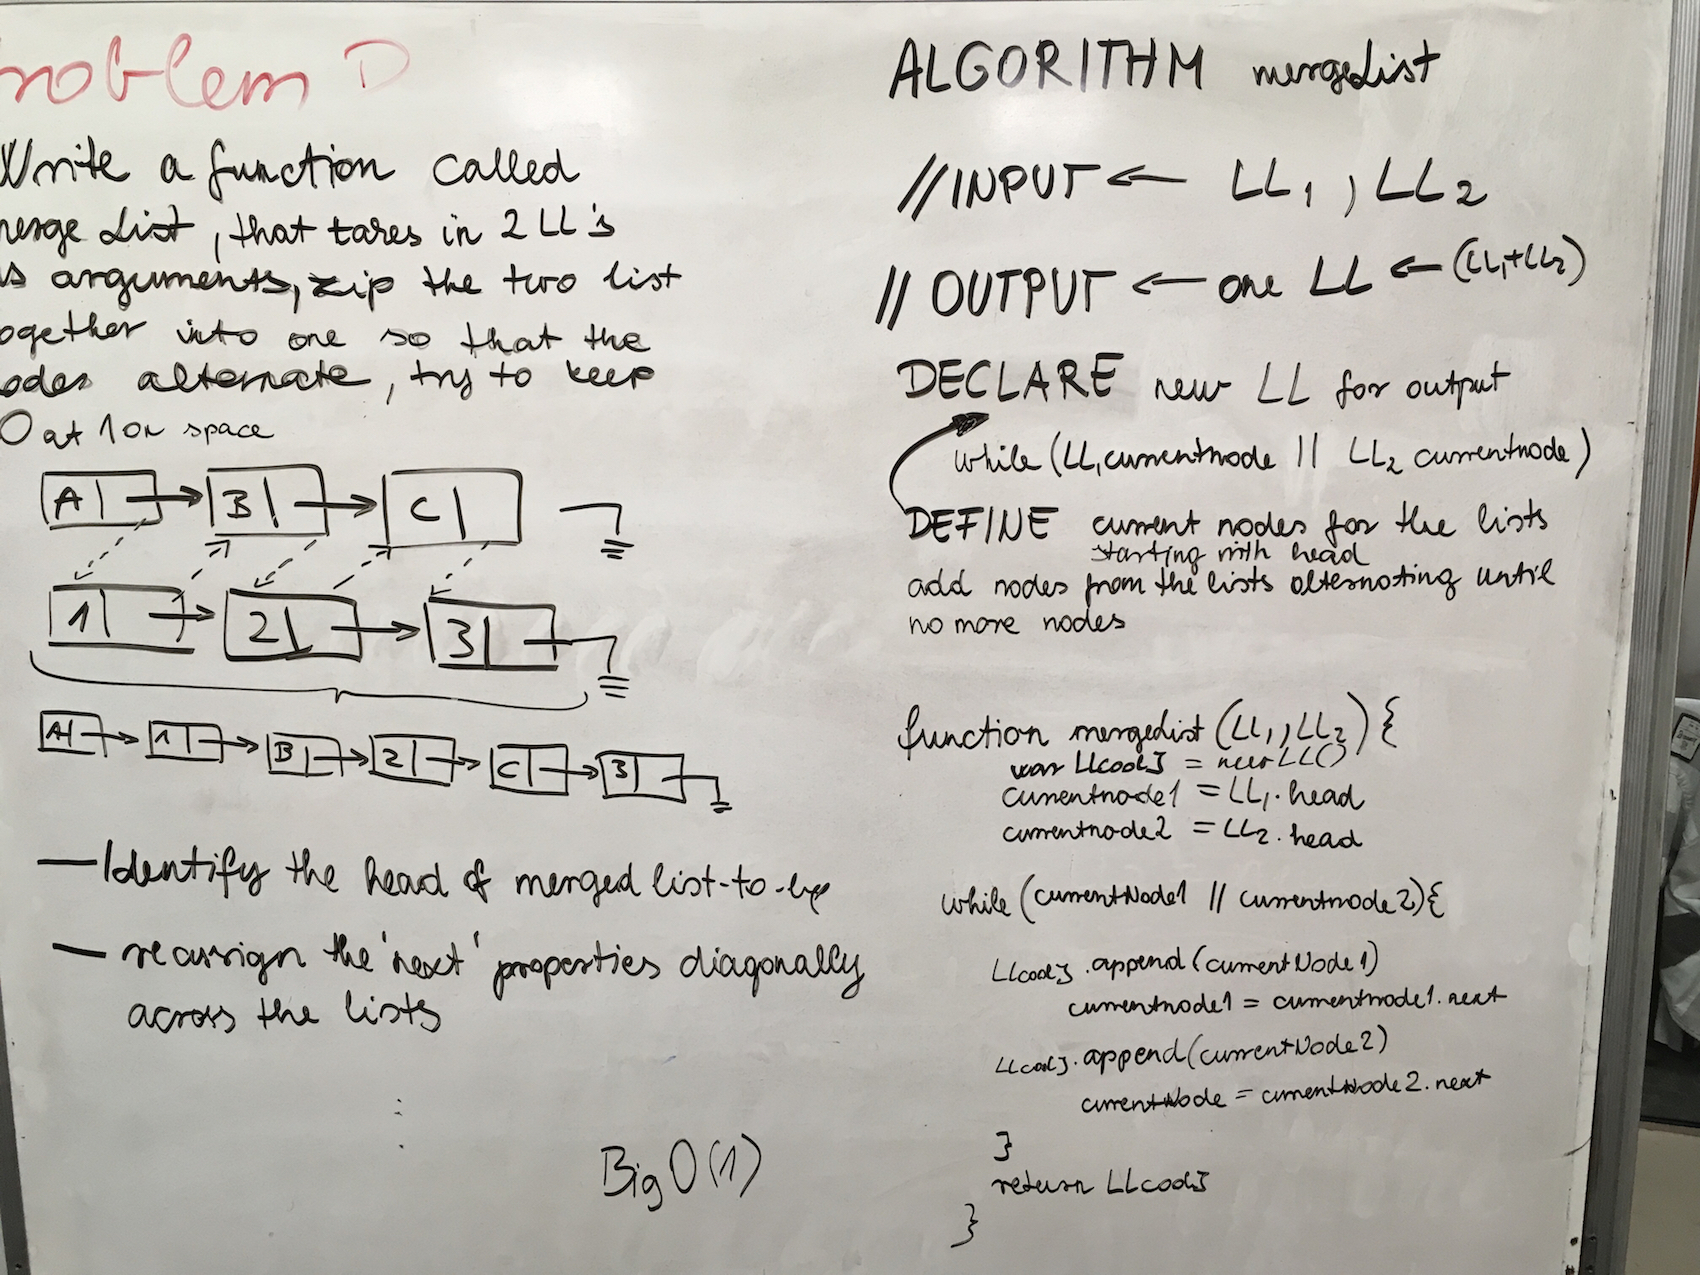 roblem D
Write a function called
merge List, that takes in 2 LL's
as arguments, zip the two list
ogether into one so that the
odes alternate, try to keep
O at 1 on space
A B C
1 2 3
A 1 B 2 C 3
— Identify the head of merged list-to-be
— reassign the 'next' properties diagonally
across the lists
Big O(1)
ALGORITHM mergeList
//INPUT ← LL1, LL2
// OUTPUT ← one LL ← (LL1+LL2)
DECLARE new LL for output
while (LL1 currentnode || LL2 currentnode)
DEFINE current nodes for the lists
starting with head
add nodes from the lists alternating until
no more nodes
function mergedist (LL1, LL2) {
var = new LL()
currentnode1 = LL1.head
currentnode2 = LL2.head
while (currentNode1 || currentnode2){
.append(currentNode1)
currentnode1 = currentnode1.next
.append(currentNode2)
currentNode = currentNode2.next
}
return
}